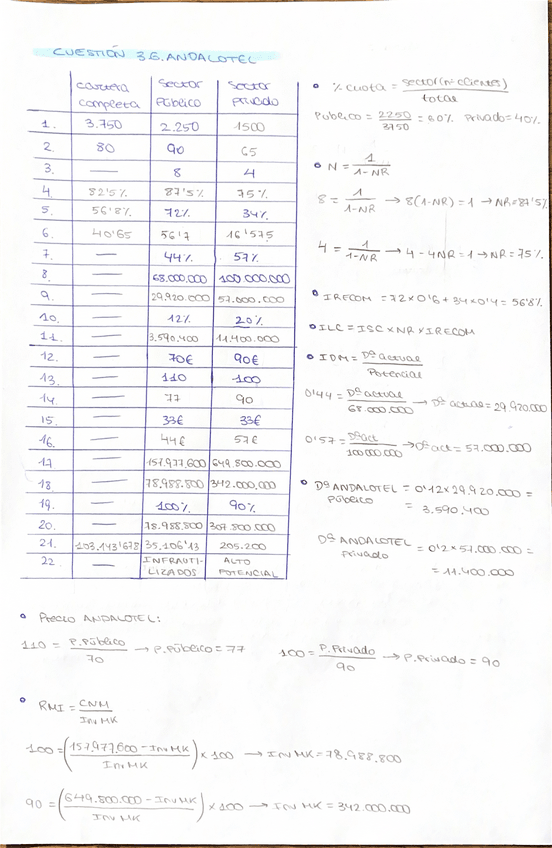 CUESTIÓN 3G. ANDALOTEL
cartera completa | sector Público | sector privado
1. | 3.750 | 2.250 | 1500
2. | 80 | 90 | 65
3. | — | 8 | 4
4. | 82'5% | 87'5% | 75%
5. | 56'8% | 72% | 34%
6. | 40'65 | 56'7 | 16'575
7. | — | 44% | 57%
8. | — | 68.000.000 | 100.000.000
9. | — | 29.920.000 | 57.000.000
10. | — | 12% | 20%
11. | — | 3.590.400 | 11.400.000
12. | — | 70€ | 90€
13. | — | 110 | 100
14. | — | 77 | 90
15. | — | 33€ | 33€
16. | — | 44€ | 57€
17 | — | 157.977.600 | 649.800.000
18 | — | 78.988.800 | 342.000.000
19. | — | 100% | 90%
20. | — | 78.988.800 | 307.800.000
21. | 103.143'678 | 35.106'13 | 205.200
22. | — | INFRAUTI-LIZADOS | ALTO POTENCIAL
• % cuota = sector (nº clientes) / total
Público = 2250 / 3750 = 60% Privado = 40%
• N = 1 / 1-NR
8 = 1 / 1-NR → 8(1-NR) = 1 → NR = 87'5%
4 = 1 / 1-NR → 4 - 4NR = 1 → NR = 75%
• IRECOM = 72 x 0'6 + 34 x 0'4 = 56'8%
• ILC = ISC x NR x IRECOM
• IDM = Dº actual / Potencial
0'44 = Dº actual / 68.000.000 → Dº actual = 29.920.000
0'57 = Dº act / 100.000.000 → Dº act = 57.000.000
• Dº ANDALOTEL Público = 0'12 x 29.920.000 =
= 3.590.400
Dº ANDALOTEL Privado = 0'2 x 57.000.000 =
= 11.400.000
• Precio ANDALOTEL:
110 = P.Público / 70 → P.Público = 77 100 = P.Privado / 90 → P.Privado = 90
• RMI = CNM / Inv MK
100 = (157.977.600 - Inv MK / Inv MK) x 100 → Inv MK = 78.988.800
90 = (649.800.000 - Inv MK / Inv MK) x 100 → Inv MK = 342.000.000